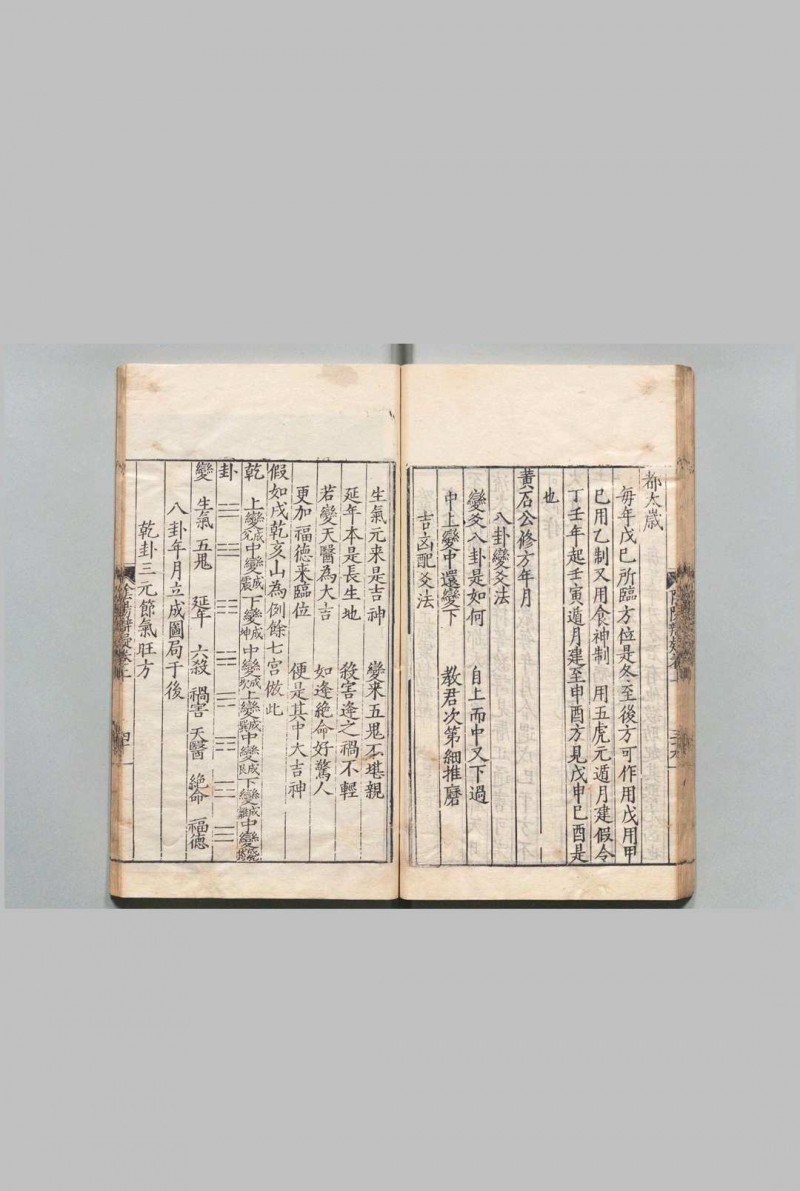 都太歲
每年戊巳所臨方位是冬至後方可作用戊用甲
巳用乙制又用食神制 用五虎元遁月建假令
丁壬年起壬寅遁月建至申酉方見戊申巳酉是
也
黃石公修方年月
八卦變爻法
變爻八卦是如何 自上而中又下過
中上變中還變下 教君次第細推磨
吉凶配爻法
生氣元来是吉神 變来五鬼不堪親
延年本是長生地 殺害逢之禍不輕
若變天醫為大吉 如逢絶命好驚人
更加福德来臨位 便是其中大吉神
假如戌乾亥山為例餘七宮倣此
乾 上變成兌 中變成震 下變成坤 中變成坎 上變成巽 中變成艮 下變成離 中變成乾
卦 ☰ ☰
變 生氣 五鬼 延年 六殺 禍害 天醫 絶命 福德
八卦年月立成圖局于後
乾卦三元節氣旺方